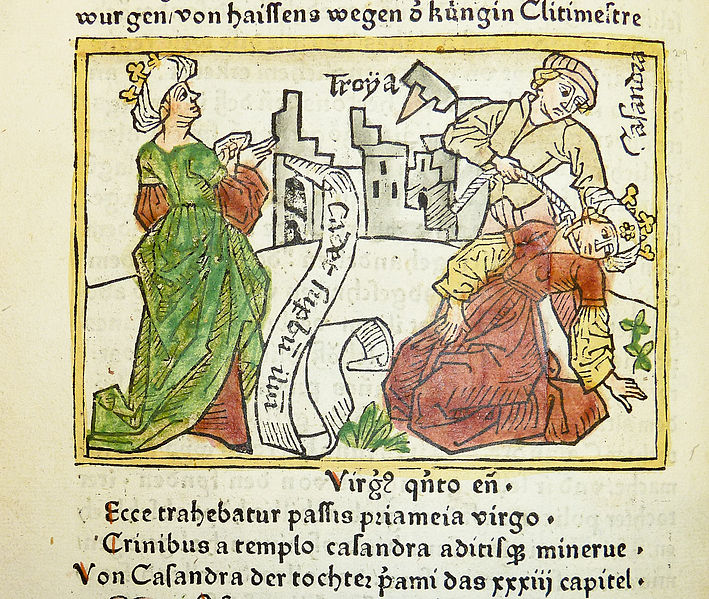 wurgen/von haissens wegen d̕ küngin Clitimestre
Troÿa
Casandra
Cadet supbū iliū
Virgꝰ qnto en̄ .
Ecce trahebatur passis priameia virgo .
Crinibus a templo casandra aditisqꝫ minerue .
Von Casandra der tochter p̄ami das xxxiij capitel .